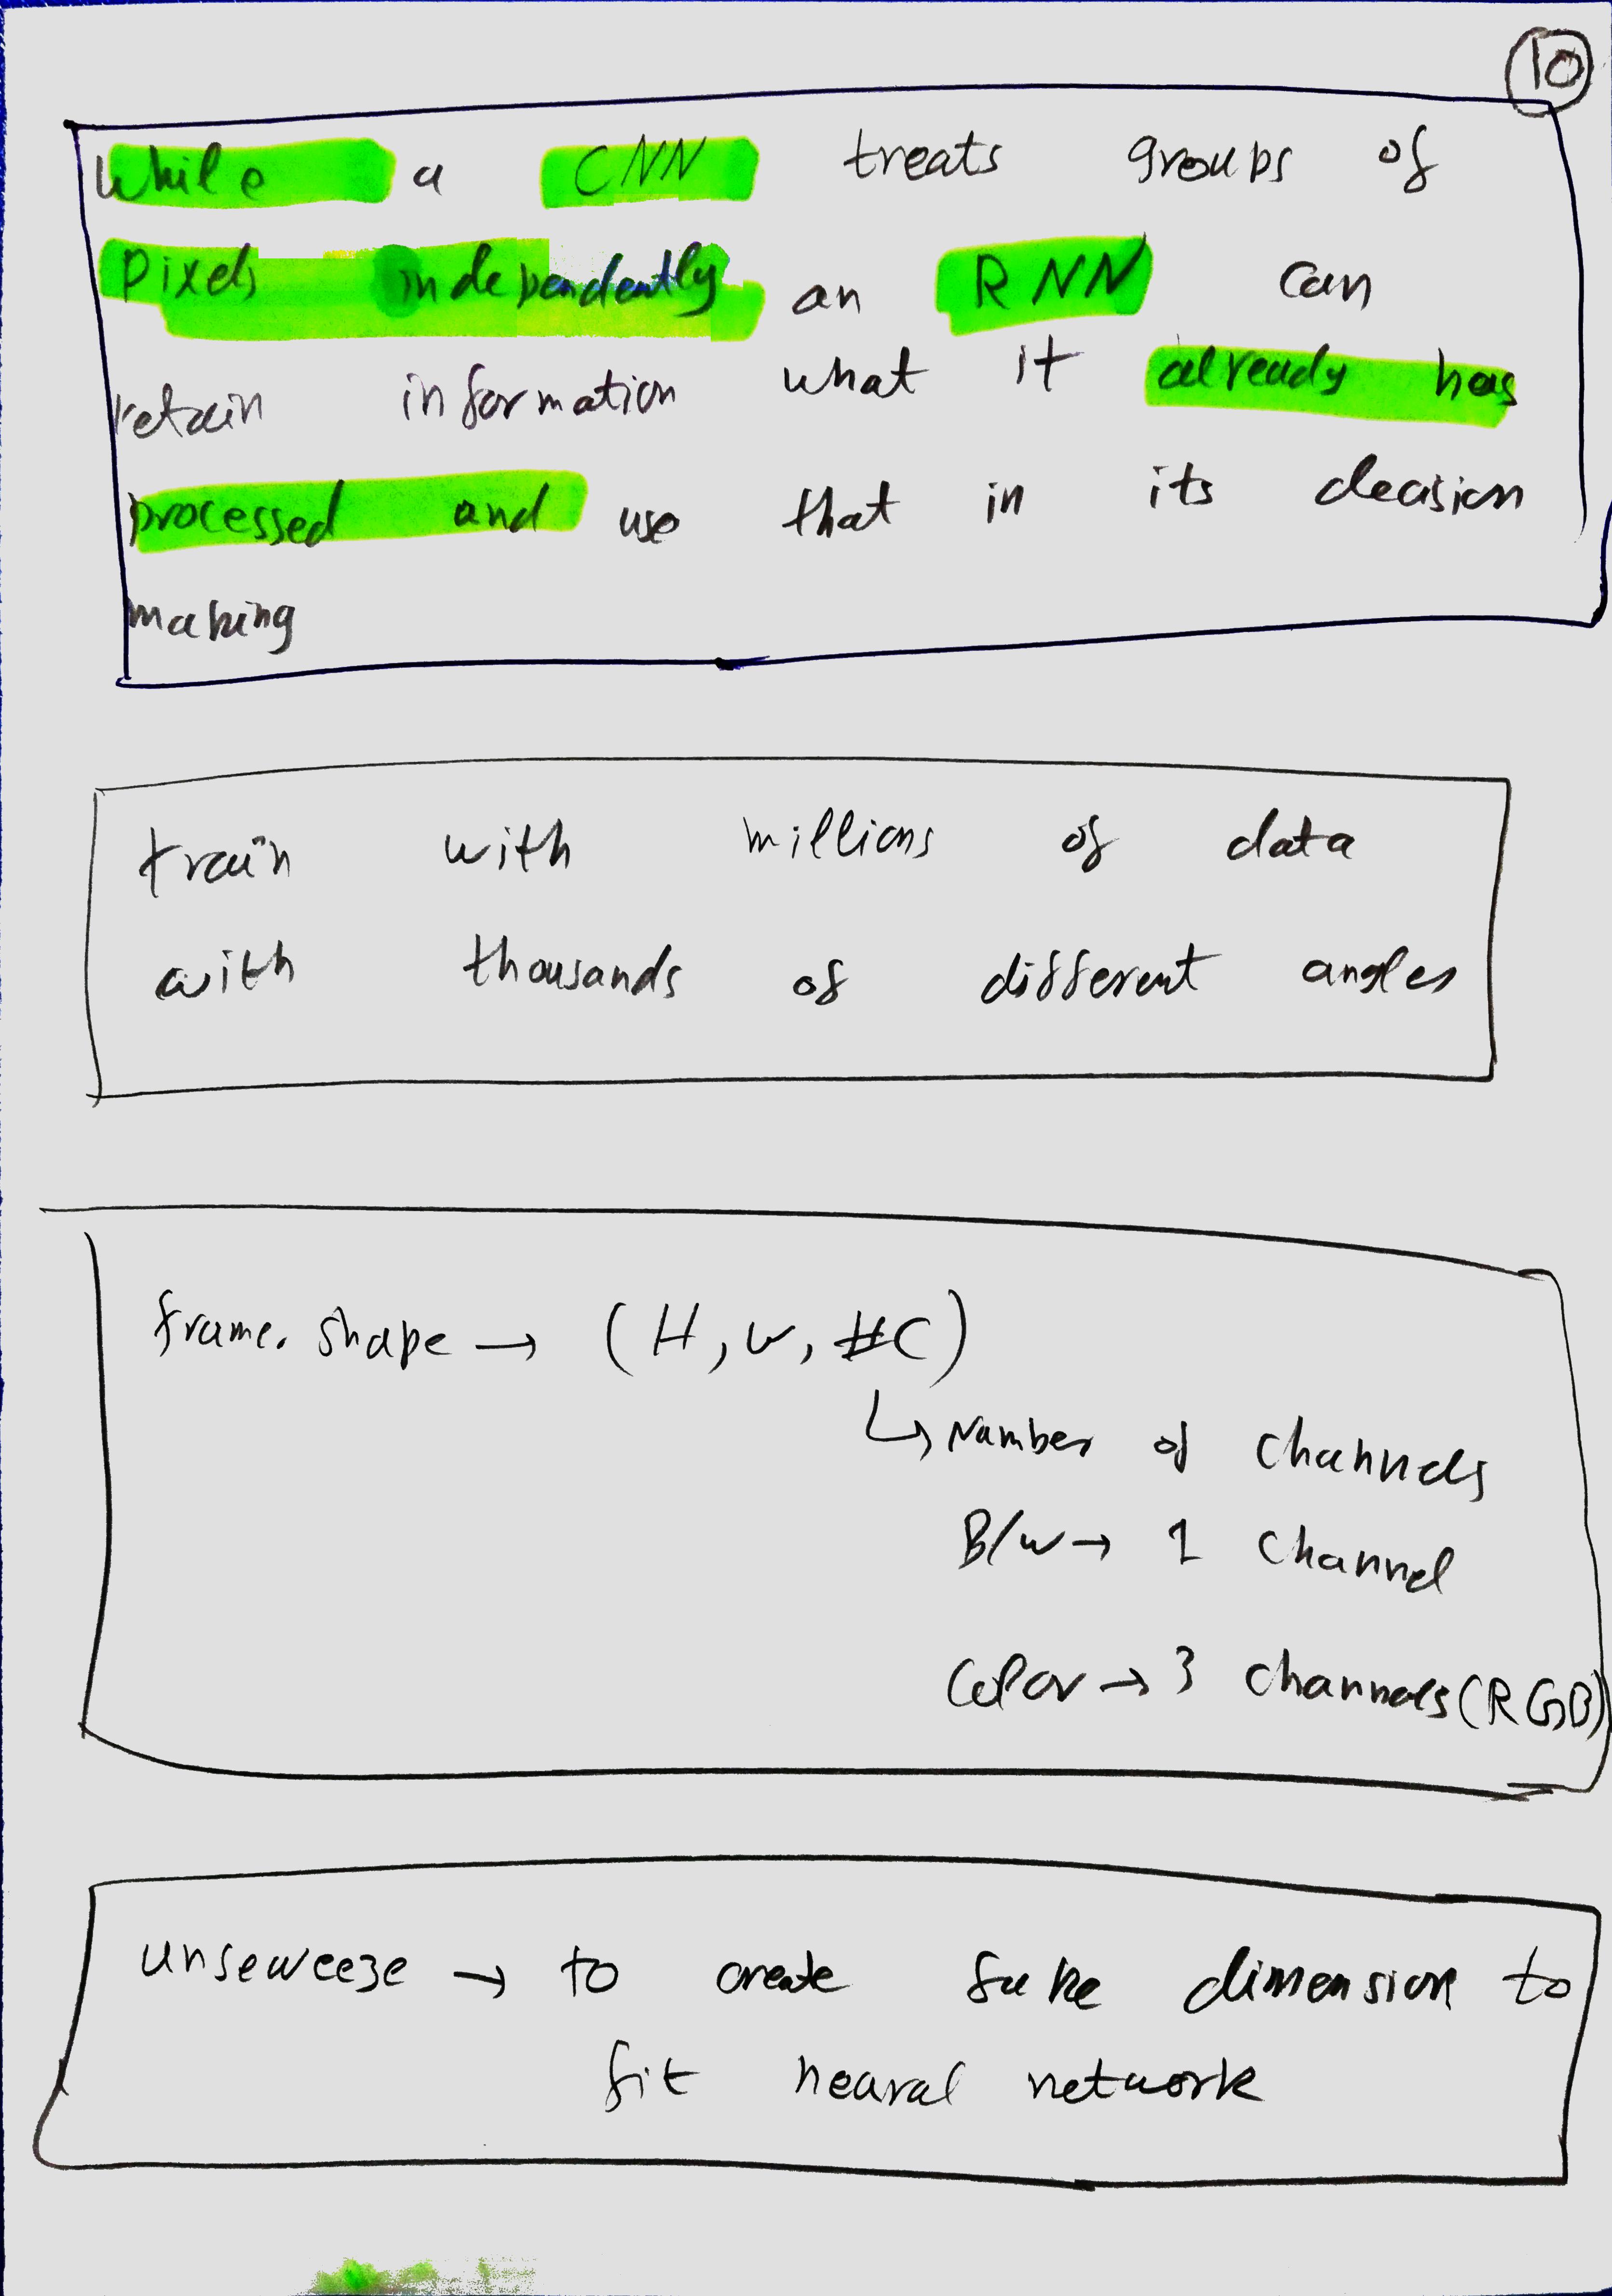 10
While a CNN treats groups of
Pixels independently an RNN can
retain information what it already has
processed and use that in its decision
making
train with millions of data
with thousands of different angles
frame. shape → (H, W, #C)
↳ Number of channels
B/W → 1 channel
Color → 3 channels (RGB)
unseweeze → to create fake dimension to
fit neural network